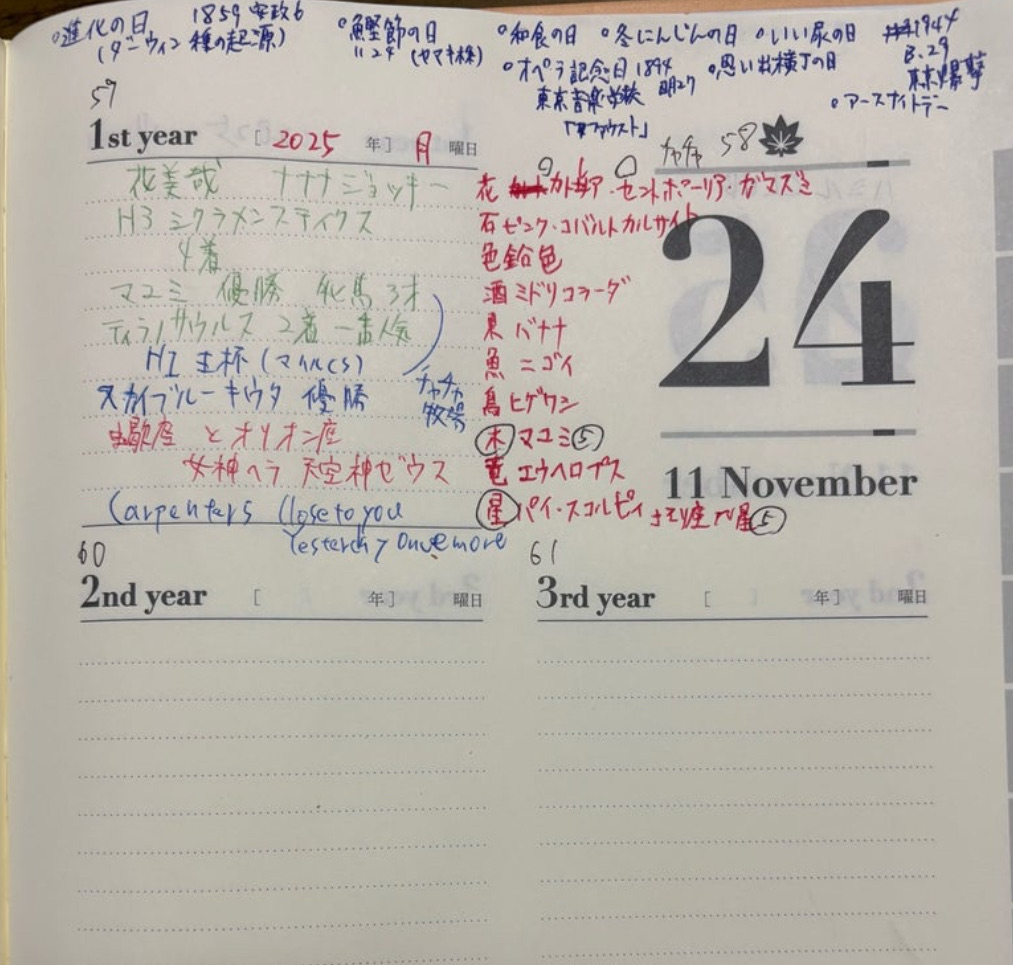 ○進化の日 1859 安政6
(ダーウィン 種の起源)
○鰹節の日
11.24 (ヤマキ株)
○和食の日 ○冬にんじんの日 ○いい尿の日
○オペラ記念日 1894 明27 ○思い出横丁の日
東京音楽学校
「ファウスト」
1944
B.29
東京爆撃
○アースナイトデー
59
1st year [2025年] 月曜日
花美哉 ナナナジョッキー
H3 ミクラメンステイクス
4着
マユミ 優勝 牝馬3才
ティラノサウルス 2着 一番人気
HI 生杯 (マイルCS)
スカイブルーキウタ 優勝
チャチャ
牧場
蠍座 とオリオン座
女神ヘラ 天空神ゼウス
Carpenters Close to you
Yesterday Once more
花 カトレア・セントポーリア・ガマズミ
石 ピンク・コバルトカルサイト
色 鉛色
酒 ミドリコラーダ
果 バナナ
魚 ニゴイ
鳥 ヒゲワシ
木 マユミ⑤
竜 エウヘロプス
星 パイ・スコルピイ さそり座π星⑤
チャチャ 58
24
11 November
60
2nd year [ 年] 曜日
61
3rd year [ 年] 曜日